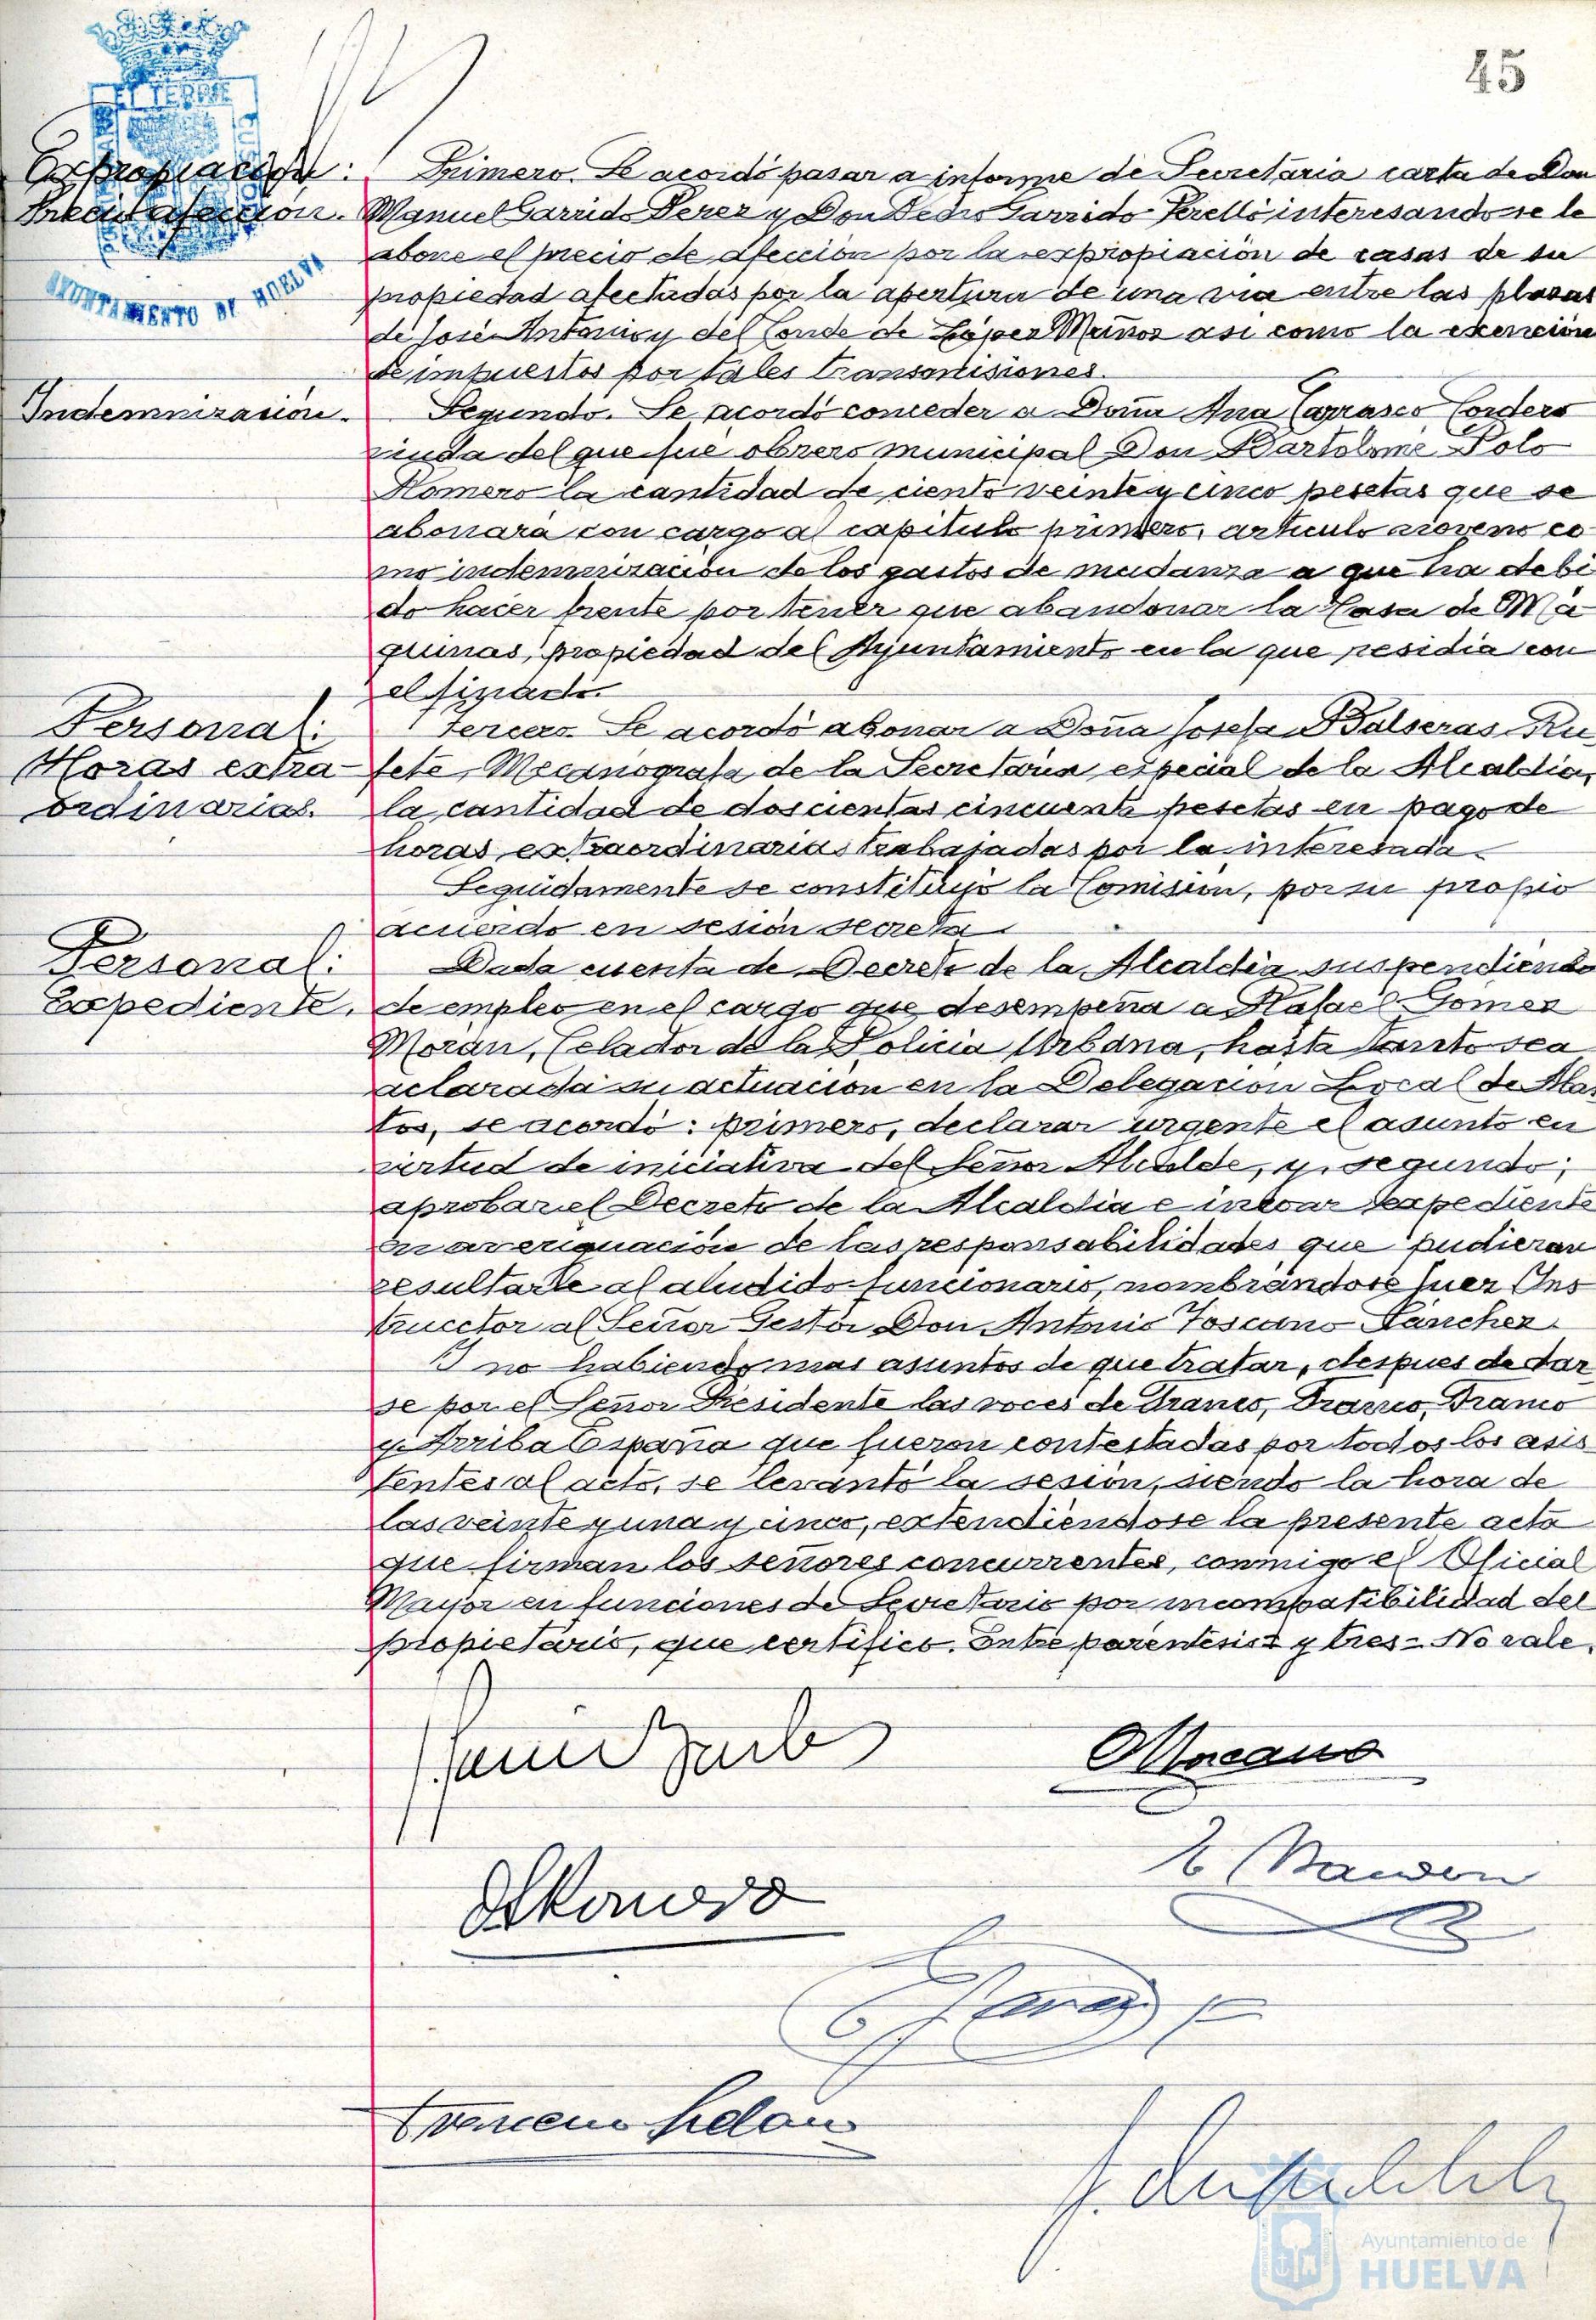 45
Expropiación:
Precio afección.
Primero. Se acordó pasar a informe de Secretaria carta de Don
Manuel Garrido Perez y Don Pedro Garrido Perelló interesandose le
abone el precio de afección por la expropiación de casas de su
propiedad afectadas por la apertura de una via entre las plazas
de José Antonio y del Conde de López Muñoz asi como la exención
de impuestos por tales transmisiones.
Indemnización.
Segundo. Se acordó conceder a Doña Ana Carrasco Cordero
viuda del que fué obrero municipal Don Bartolomé Polo
Romero la cantidad de ciento veinte y cinco pesetas que se
abonará con cargo al capitulo primero, articulo noveno co
mo indemnización de los gastos de mudanza a que ha debi
do hacer frente por tener que abandonar la Casa de Má
quinas, propiedad del Ayuntamiento en la que residia con
el finado.
Personal:
Horas extra-
ordinarias.
Tercero. Se acordó abonar a Doña Josefa Balseras Ru
fete, Mecanógrafa de la Secretaria especial de la Alcaldia,
la cantidad de doscientas cincuenta pesetas en pago de
horas extraordinarias trabajadas por la interesada.
Seguidamente se constituyó la Comisión, por su propio
acuerdo en sesión secreta.
Personal:
Expediente.
Dada cuenta de Decreto de la Alcaldia suspendiendo
de empleo en el cargo que desempeña a Rafael Gomez
Morán, Celador de la Policia Urbana, hasta tanto sea
aclarada su actuación en la Delegación Local de Abas
tos, se acordó: primero, declarar urgente el asunto en
virtud de iniciativa del Señor Alcalde, y segundo;
aprobar el Decreto de la Alcaldia e incoar expediente
en averiguación de las responsabilidades que pudieran
resultarle al aludido funcionario, nombrándose Juez Ins
tructor al Señor Gestor Don Antonio Toscano Sánchez.
Y no habiendo mas asuntos de que tratar, despues de dar
se por el Señor Presidente las voces de Franco, Franco, Franco
y Arriba España que fueron contestadas por todos los asis
tentes al acto, se levantó la sesión, siendo la hora de
las veinte y una y cinco, extendiéndose la presente acta
que firman los señores concurrentes, conmigo el Oficial
Mayor en funciones de Secretario por incompatibilidad del
propietario, que certifico. Entre parentesis = y tres = No vale.
AYUNTAMIENTO DE HUELVA
Ayuntamiento de
HUELVA